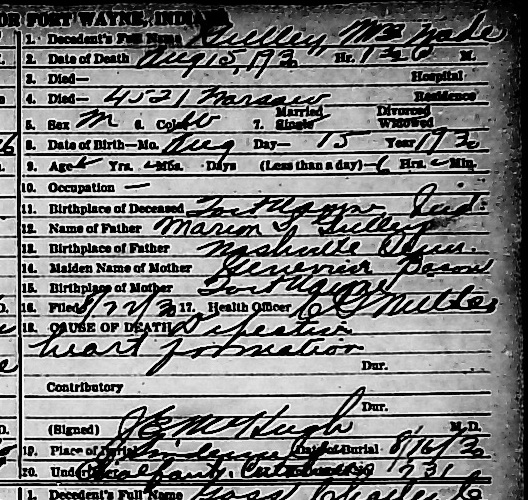 OR FORT WAYNE, INDIANA
1. Decedent's Full Name Gulley, Wade
2. Date of Death Aug 15, 1930 Hr. 1 30 M.
3. Died— Hospital
4. Died— 4521 Warsaw Residence
5. Sex M 6. Color W 7. Married Single Divorced Widowed
8. Date of Birth—Mo. Aug Day— 15 Year 1930
9. Age Yrs. Mos. Days (Less than a day)—6 Hrs. Min.
10. Occupation —
11. Birthplace of Deceased Fort Wayne Ind.
12. Name of Father Marion Gulley
13. Birthplace of Father Nashville Tenn.
14. Maiden Name of Mother Genevieve
15. Birthplace of Mother Fort Wayne
16. Filed 8/22/30 17. Health Officer
18. CAUSE OF DEATH Defective
heart formation
Dur.
Contributory
Dur.
(Signed) J E McHugh M.D.
19. Place of Burial Lindenwood Date of Burial 8/16/30
20. Undertaker
Decedent's Full Name